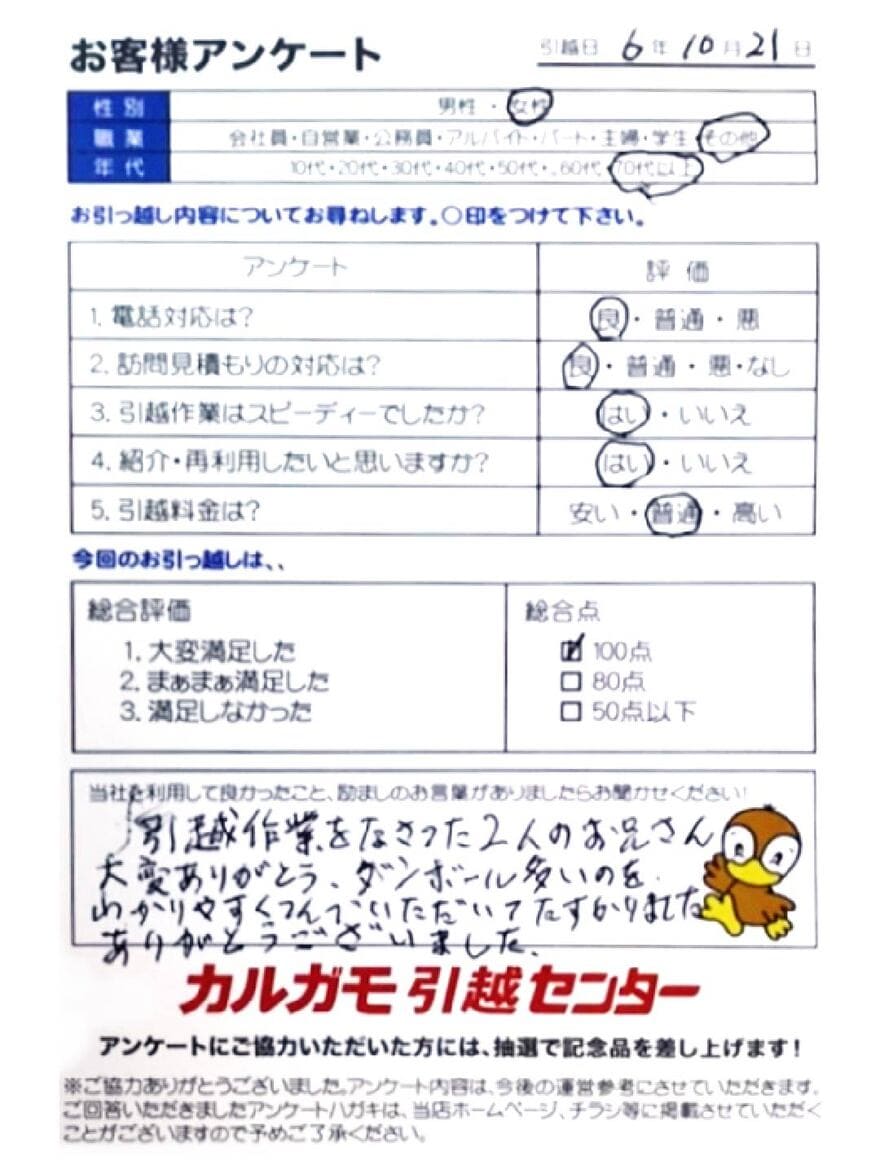 お客様アンケート
引越日 6年10月21日
性別 男性・女性
職業 会社員・自営業・公務員・アルバイト・パート・主婦・学生・その他
年代 10代・20代・30代・40代・50代・60代・70代以上
お引っ越し内容についてお尋ねします。〇印をつけて下さい。
アンケート 評価
1. 電話対応は? 良・普通・悪
2. 訪問見積もりの対応は? 良・普通・悪・なし
3. 引越作業はスピーディーでしたか? はい・いいえ
4. 紹介・再利用したいと思いますか? はい・いいえ
5. 引越料金は? 安い・普通・高い
今回のお引っ越しは、、
総合評価 総合点
1. 大変満足した 100点
2. まぁまぁ満足した 80点
3. 満足しなかった 50点以下
当社を利用して良かったこと、励ましのお言葉がありましたらお聞かせください!
引越作業をなさった2人のお兄さん
大変ありがとう、ダンボール多いのを
わかりやすくつんでいただいてたすかりました
ありがとうございました.
カルガモ引越センター
アンケートにご協力いただいた方には、抽選で記念品を差し上げます!
※ご協力ありがとうございました。アンケート内容は、今後の運営参考にさせていただきます。
ご回答いただきましたアンケートハガキは、当店ホームページ、チラシ等に掲載させていただく
ことがございますので予めご了承ください。